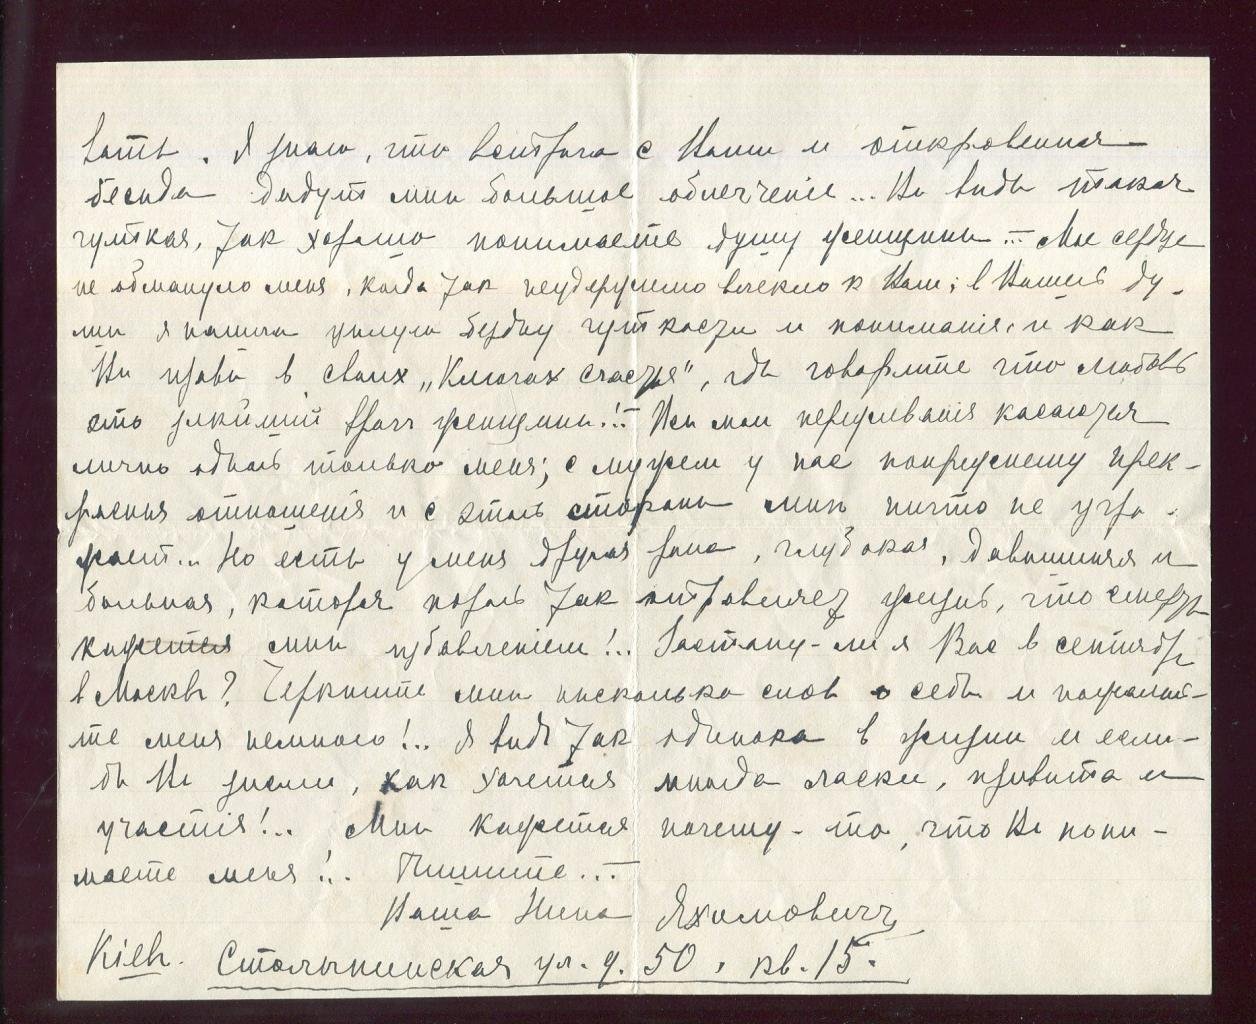 вать. Я знаю, что встреча с Вами и откровенная
беседа дадут мне большое облегченіе... Вы ведь такая
чуткая, так хорошо понимаете душу женщины... Мое сердце
не обмануло меня, когда так неудержимо влекло к Вам; в Вашей ду-
ше я нашла целую бездну чуткости и пониманія. и как
Вы правы в своих „Ключах счастья", где говорите что любовь
есть злейший враг женщины!.. Все мои переживанія касаются
лично одной только меня; с мужем у нас попрежнему прек-
расныя отношенія и с этой стороны мне ничто не угро-
жает... Но есть у меня другая рана, глубокая, давишняя и
больная, которая порой так отравляет жизнь, что смерть
кажется мне избавленіем!.. Застану-ли я Вас в сентябре
в Москве? Черкните мне несколько слов о себе и пожалей-
те меня немного!.. Я ведь так одинока в жизни и если-
бы Вы знали, как хочется иногда ласки, привета и
участія!.. Мне кажется почему-то, что Вы пони-
маете меня!.. Пишите...
Ваша Нина Яхимович
Кіевъ. Столыпинская ул. д. 50, кв. 15.